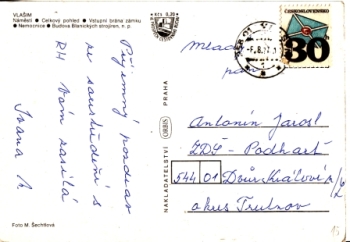 VLAŠIM
Náměstí • Celkový pohled • Vstupní brána zámku
• Nemocnice • Budova Blanických strojíren, n. p.
Příjemný pozdrav
ze soustředění s
RH Vám zasílá
Ivana
Foto M. Šechtlová
NAKLADATELSTVÍ ORBIS PRAHA
ČESKOSLOVENSKO
30
Antonín Jarosl
ZDŠ - Podhart
544 01 Dvůr Králové n/L
okres Trutnov